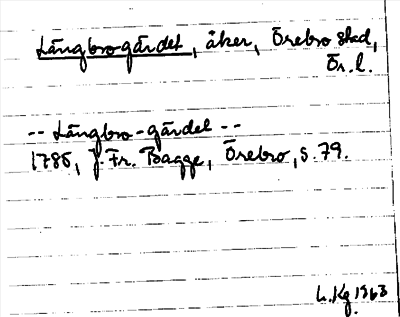 Långbro-gärdet, åker, Örebro stad,
Ör. l.
-- Långbro-gärdet --
1785, J. Fr. Bagge, Örebro, s. 79.
L. Kg 1963